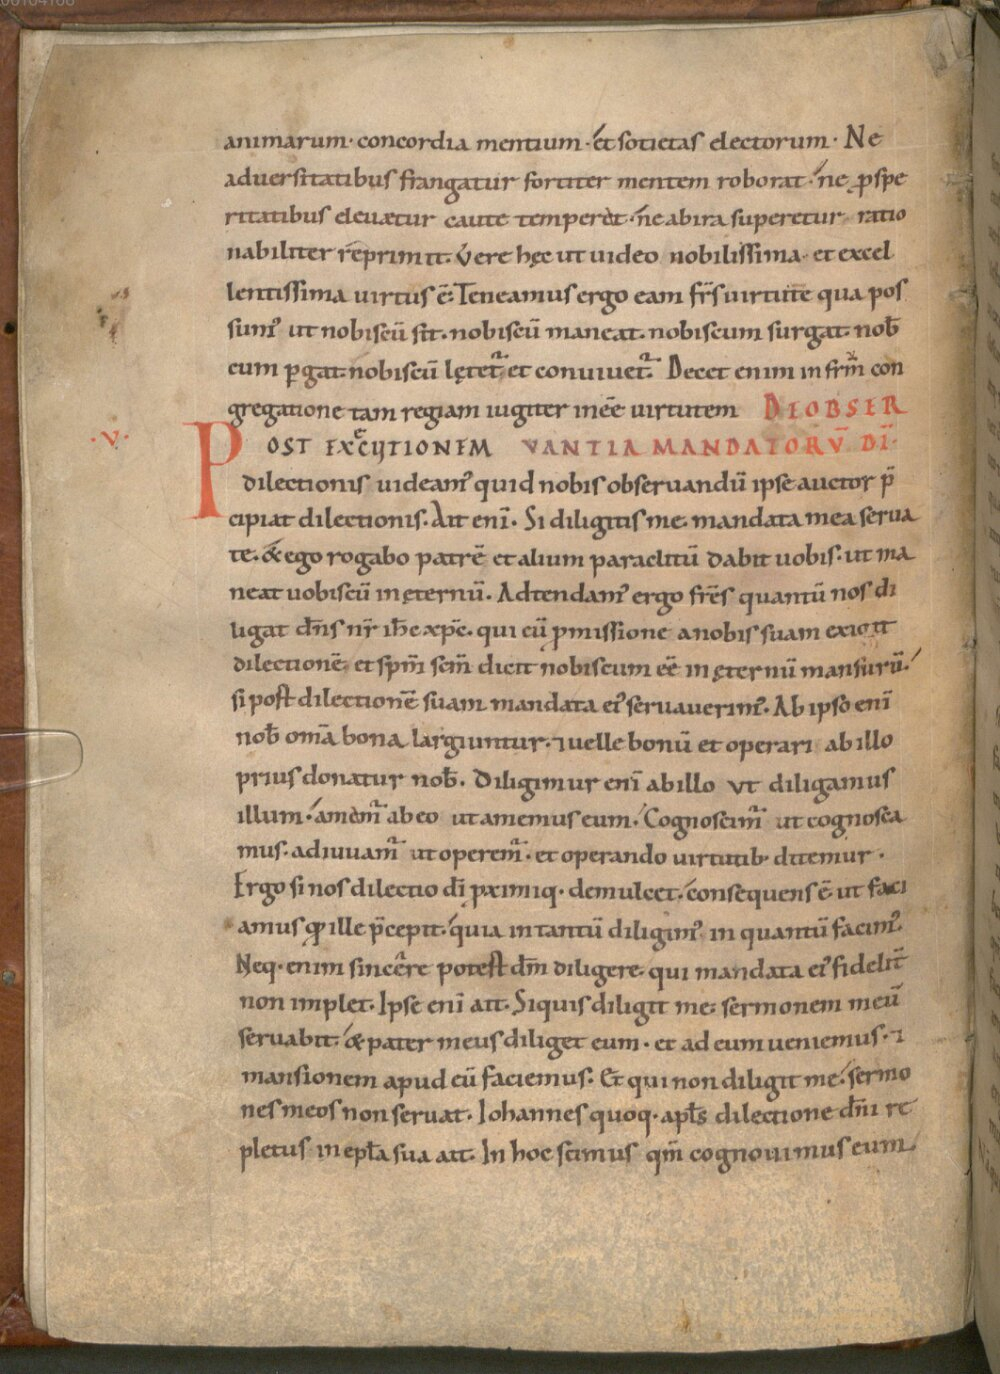 animarum· concordia mentium· et sotietas electorum· Ne
aduersitatibus frangatur fortiter mentem roborat· ne ꝓspe
ritatibus eleuetur caute temperet· ne ab ira superetur ratio
nabiliter reprimit. Vere hęc ut uideo nobilissima· et excel
lentissima uirtus ē. Teneamus ergo eam fr̄s uirtute qua pos
sumꝰ ut nobiscū sit· nobiscū maneat· nobiscum surgat· nob̄
cum ꝑgat· nobiscū lętet᷑ et conuiuet᷑. Decet enim in frm̄ con
gregatione tam regiam iugiter inēe uirtutem DE OBSER
·V· POST EXECUTIONEM VANTIA MANDATORV̄ DI·
dilectionis uideamꝰ quid nobis obseruandū ipse auctor p̄
cipiat dilectionis. Ait enī. Si diligitis me· mandata mea serua
te· & ego rogabo patrē et alium paraclitū dabit uobis· ut ma
neat uobiscū in ęternū. Adtendamꝰ ergo fr̄es quantū nos di
ligat dn̄s nr̄ ih̄c xp̄c· qui cū ꝓmissione a nobis suam exigit
dilectionē· et sp̄m sc̄m dicit nobiscum eē in ęternū mansurū·
si post dilectionē suam mandata eiꝰ seruauerimꝰ. Ab ipso enī
nob̄ om̄a bona largiuntur· ⁊ uelle bonū et operari ab illo
prius donatur nob̄. Diligimur enī ab illo ut diligamus
illum· amem᷑ ab eo ut amemus eum. Cognoscim᷑ ut cognosca
mus· adiuuam᷑ ut operem᷑· et operando uirtutib· ditemur·
Ergo si nos dilectio dī ꝓximiq· demulcet· consequens ē ut faci
amus qđ ille p̄cepit· quia in tantū diligimꝰ in quantū facimꝰ.
Neq· enim sincere potest dm̄ diligere· qui mandata eiꝰ fidelit̄
non implet. Ipse enī ait. Siquis diligit me· sermonem meū
seruabit· & pater meus diliget eum· et ad eum ueniemus· ⁊
mansionem apud eū faciemus. Et qui non diligit me· sermo
nes meos non seruat. Iohannes quoq· apłs dilectione dn̄i re
pletus in epła sua ait. In hoc scimus qm̄ cognouimus eum